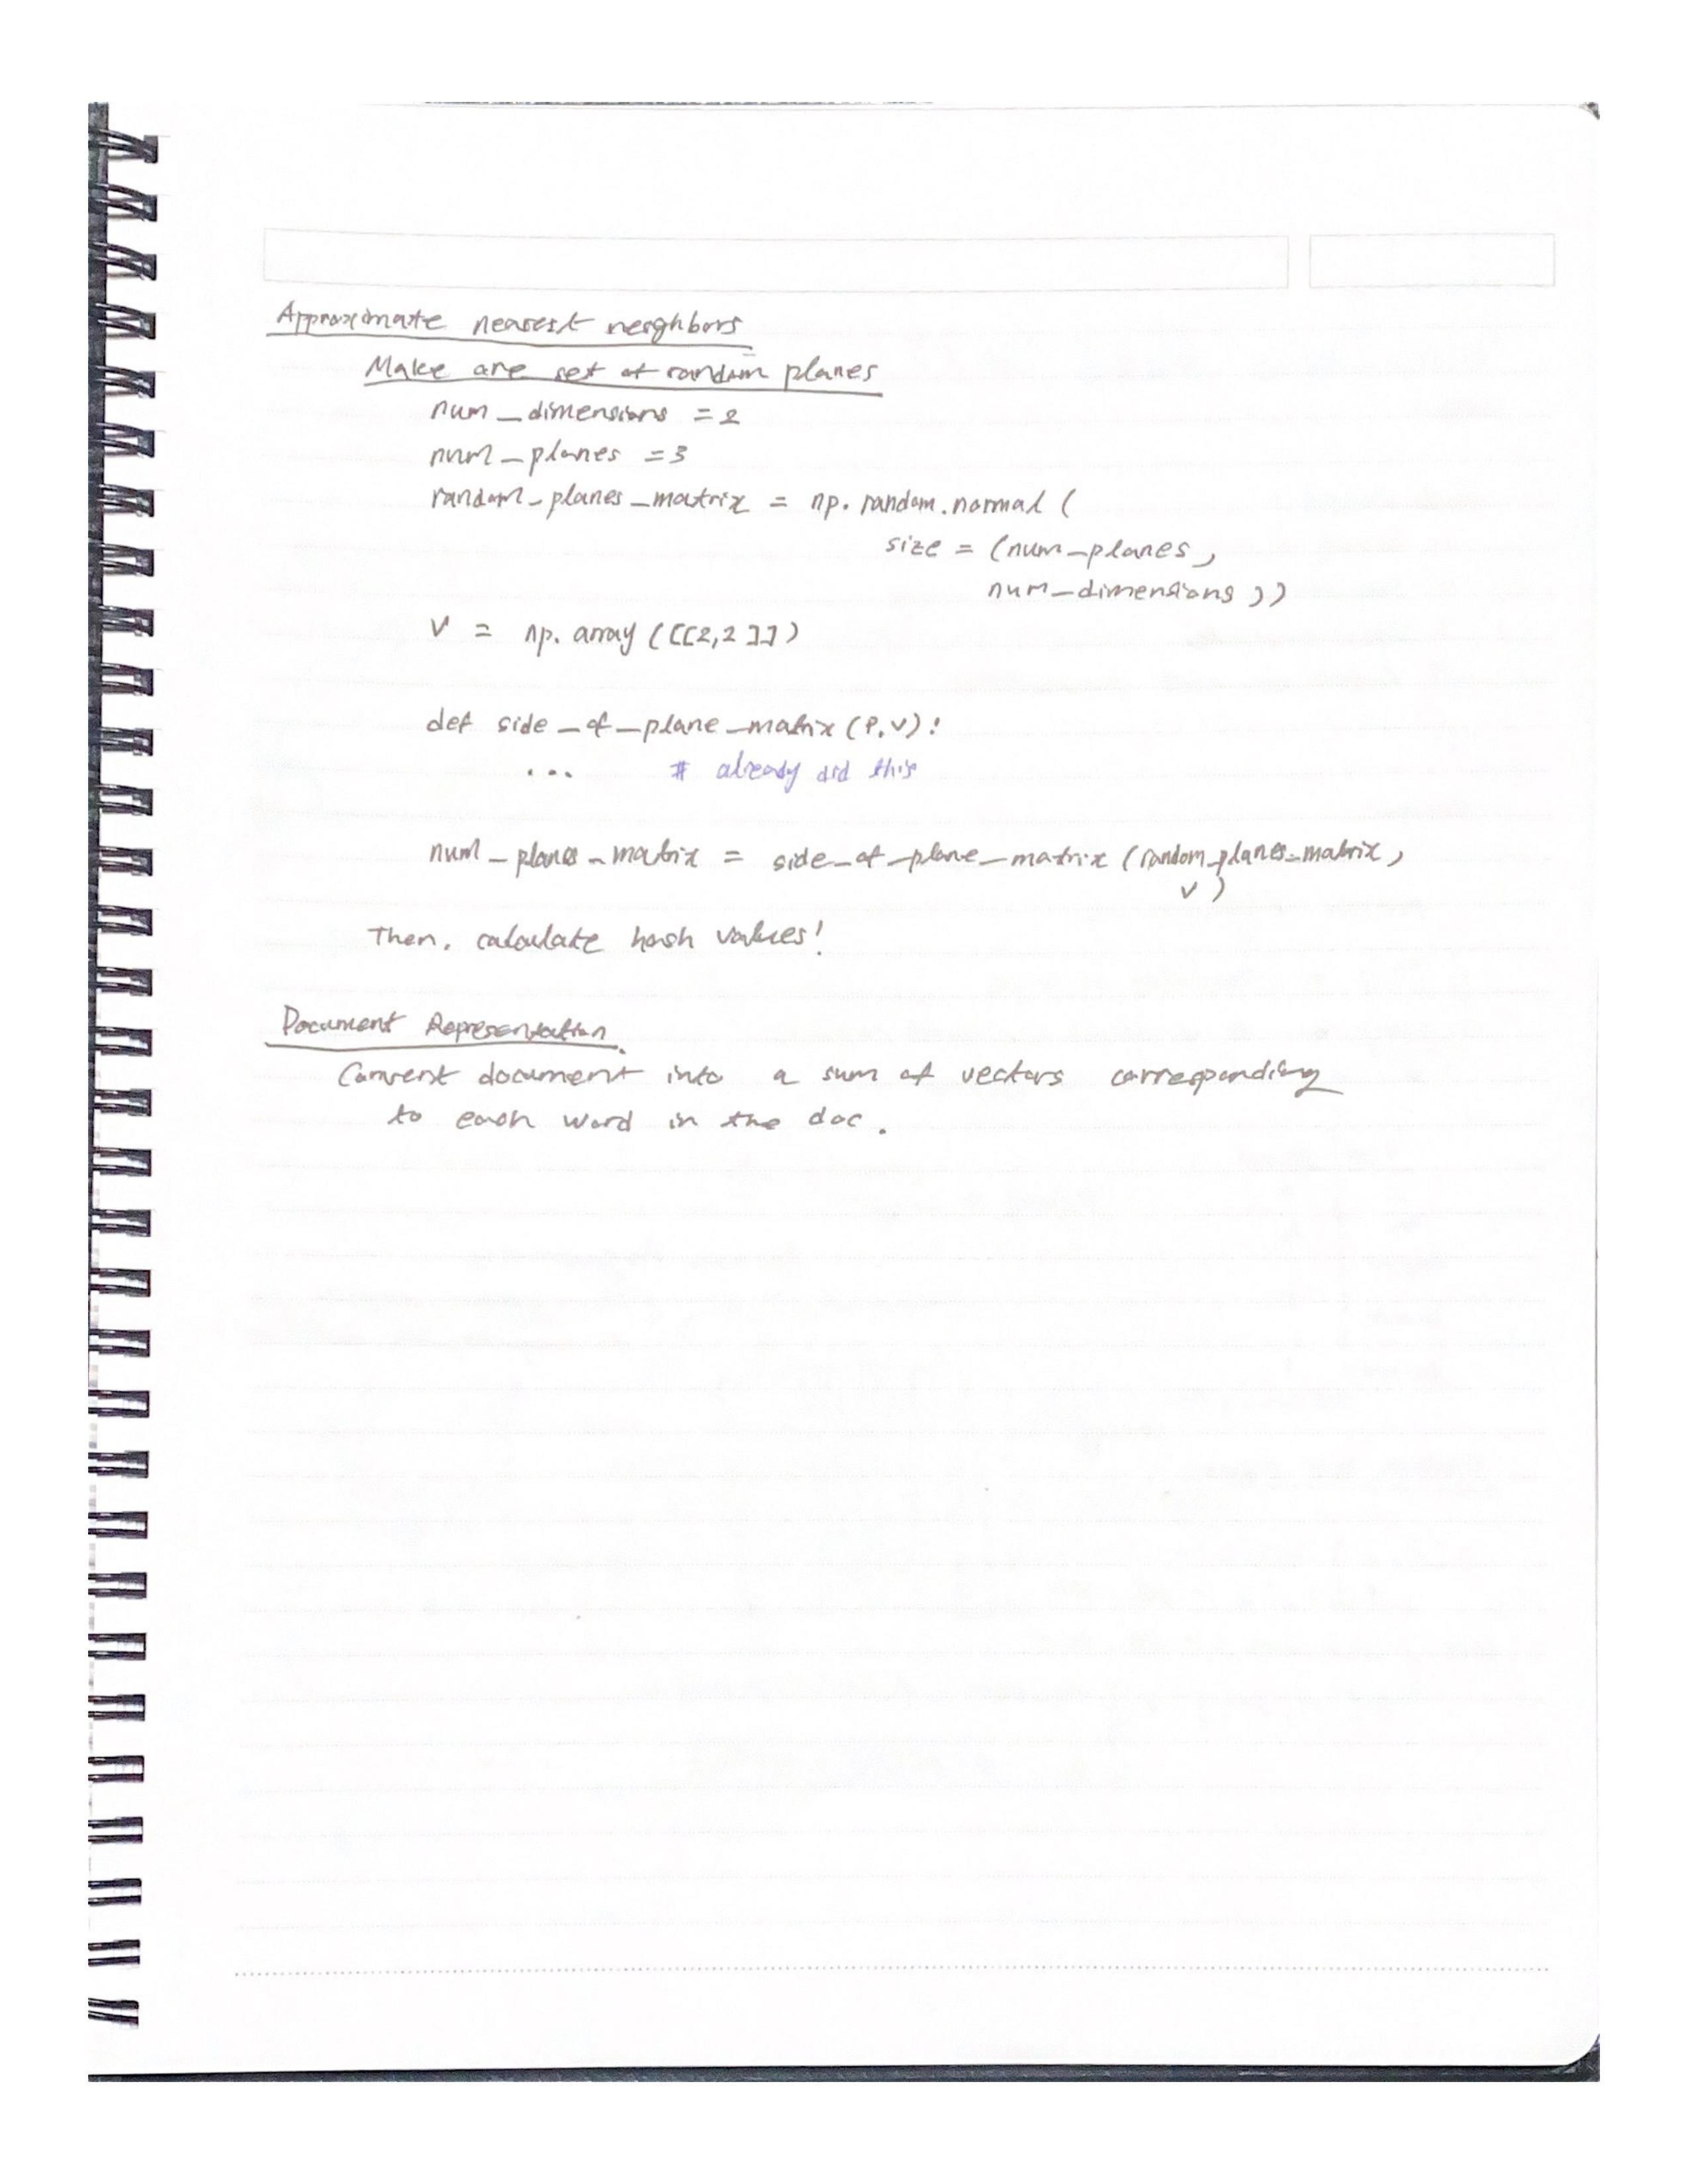 Approximate nearest neighbors
Make are set of random planes
num_dimensions = 2
num_planes = 3
random_planes_matrix = np.random.normal (
size = (num_planes,
num_dimensions ))
V = np. array ([[2,2 ]])
def side_of_plane_matrix (P,V):
... # already did this
num_planes_matrix = side_of_plane_matrix (random_planes_matrix,
V )
Then, calculate hash values!
Document Representation
Convert document into a sum of vectors corresponding
to each word in the doc.